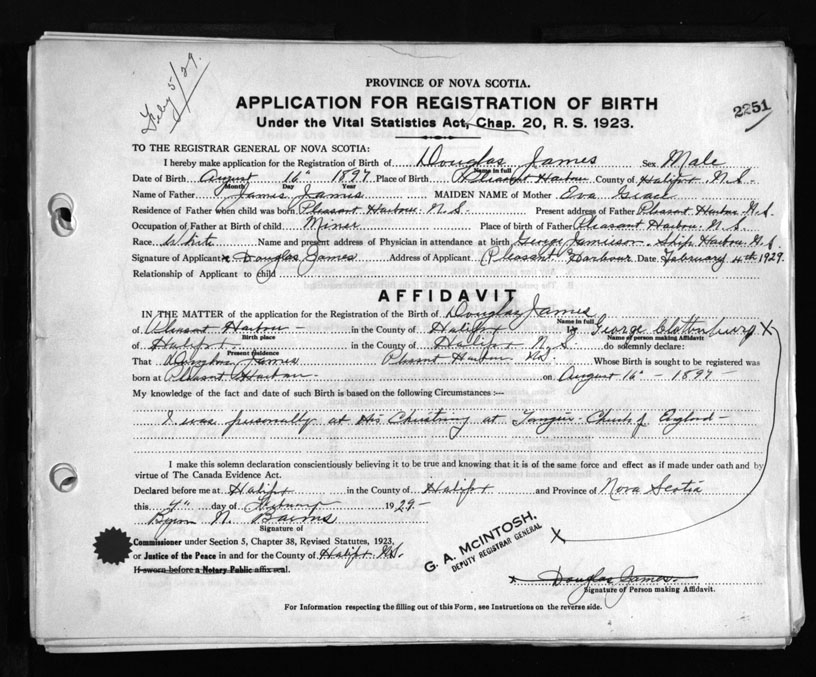 Feby 5/29.
PROVINCE OF NOVA SCOTIA.
APPLICATION FOR REGISTRATION OF BIRTH
2251
Under the Vital Statistics Act, Chap. 20, R. S. 1923.
TO THE REGISTRAR GENERAL OF NOVA SCOTIA:
I hereby make application for the Registration of Birth of Douglas James Sex Male
Name in full
Date of Birth August 16th 1897 Place of Birth Pleasant Harbour County of Halifax N.S.
Month Day Year
Name of Father James James MAIDEN NAME of Mother Eva Grace
Residence of Father when child was born Pleasant Harbour N.S. Present address of Father Pleasant Harbour N.S.
Occupation of Father at Birth of child Miner Place of birth of Father Pleasant Harbour N.S.
Race White Name and present address of Physician in attendance at birth George Jamieson Ship Harbour N.S.
Signature of Applicant x Douglas James Address of Applicant Pleasant Harbour Date February 4th 1929.
Relationship of Applicant to child
AFFIDAVIT
IN THE MATTER of the application for the Registration of the Birth of Douglas James
Name in full
of Pleasant Harbour in the County of Halifax I, George x
Birth place Name of person making Affidavit
of Halifax in the County of Halifax N.S. do solemnly declare:
Present residence
That Douglas James Pleasant Harbour N.S. Whose Birth is sought to be registered was
born at Pleasant Harbour on August 16th - 1897 -
My knowledge of the fact and date of such Birth is based on the following Circumstances :—
I was personally at His Christning at Tangier Church of England -
I make this solemn declaration conscientiously believing it to be true and knowing that it is of the same force and effect as if made under oath and by
virtue of The Canada Evidence Act.
Declared before me at Halifax in the County of Halifax and Province of Nova Scotia
this 4th day of February 1929 -
N. Bains
Signature of
Commissioner under Section 5, Chapter 38, Revised Statutes, 1923,
or Justice of the Peace in and for the County of Halifax N.S.
If sworn before a Notary Public affix seal.
G. A. McINTOSH,
DEPUTY REGISTRAR GENERAL
x
x Douglas James.
Signature of Person making Affidavit.
For Information respecting the filling out of this Form, see Instructions on the reverse side.